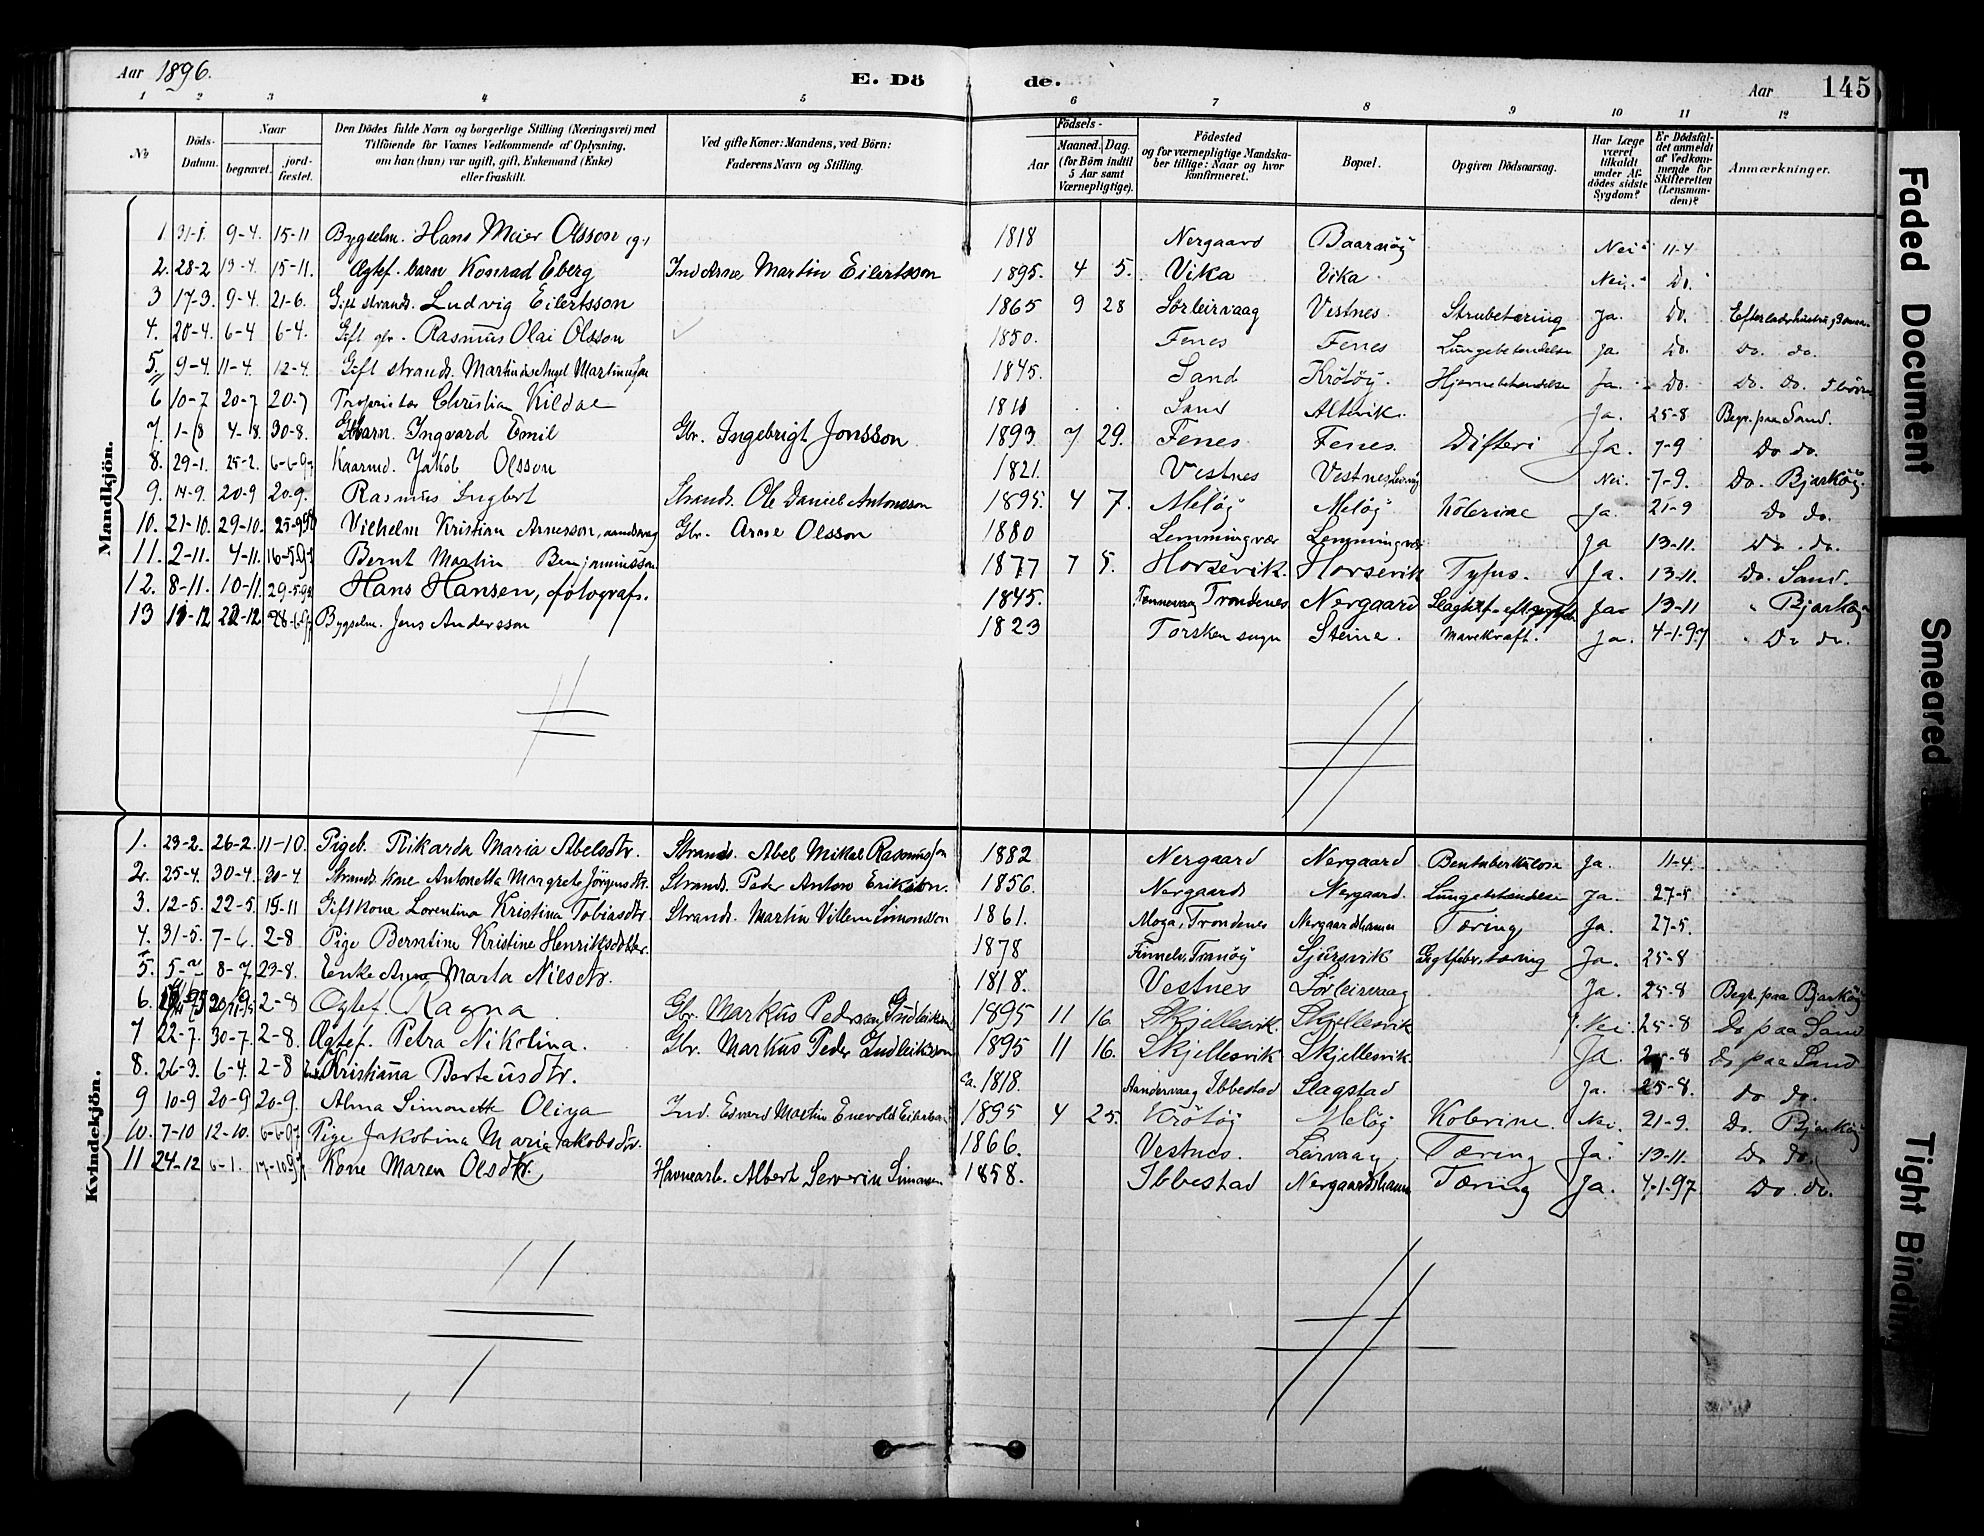 Aar 1896. E. Döde. Aar 145
1 2 3 4 5 6 7 8 9 10 11 12
No. Döds-Datum. Naar begravet. jord-fæstet. Den Dödes fulde Navn og borgerlige Stilling (Næringsvei) med Tilföiende for Voxnes Vedkommende af Oplysning, om han (hun) var ugift, gift, Enkemand (Enke) eller fraskilt. Ved gifte Koner: Mandens, ved Börn: Faderens Navn og Stilling. Födsels- Aar Maaned. Dag. (for Börn indtil 5 Aar samt Værnepligtige). Födested og for værnepligtige Mandskaber tillige: Naar og hvor konfirmeret. Bopæl. Opgiven Dödsaarsag. Har Læge været tilkaldt under Afdödes sidste Sygdom? Er Dödsfaldet anmeldt af Vedkommende for Skifteretten (Lensmanden)? Anmærkninger.
Mandkjön.
1. 31-1. 9-4. 15-11 Bygselm. Hans Meier Olsson 1818 Nergaard Baarnöy Nei 11-4
2. 28-2 13-4. 15-11. Ægtef. barn Konrad Eberg Martin Eilertsson 1895. 4 5. Vika Vika Nei. Do.
3 17-3. 9-4. 21-6. Gift strands. Ludvig Eilertsson 1865 9 28 Sörleirvaag Vestnes. Strubetæring Ja. Do.
4. 20-4. 6-4 6-4. Gift Rasmus Olai Olsson 1850. Fenes Fenes Lungebetændelse Ja. Do. Do. do.
5. 9-4. 11-4. 12-4. Gift strands. 1845. Sand Krötöy. Hjernebetændelse Ja. Do. Do. Do. 5 börn
6 10-7 20-7 20-7 Proprietær Christian Kildal Sand Altevik. Ja. 25-8 Begr. paa Sand.
7. 1-8 4-8. 30-8. Ingvard Emil Gbr. Ingebrigt Jonsson 1893. 7 29. Fenes. Fenes. Difteri Ja. 7-9 Do do.
8. 29-1. 25-2. 6-6-97 Kaarmd. Jakob Olsson 1821. Vestnes Vestnes Nei. 7-9. Do. Bjarköy
9. 14-9. 20-9 20-9. Rasmus Ingbert Strands. Ole Daniel Antonsson 1895. 4 7. Melöy Melöy Kolerine Ja. 21-9 Do do.
10. 21-10. 29-10. Vilhelm Kristian Arnesson, Gbr. Arne Olsson 1880 Lemmingvær Lemmingvær Ja 13-11. Do. do.
11. 2-11. 4-11. 16-5-97 Bernt Martin Benjaminsson. 1877 7 5. Horsevik. Horsevik Tyfus. Ja. 13-11. Do. Sand.
12. 8-11. 10-11. Hans Hansen, fotograf. 1845. Trondenes Nergaard Ja. 13-11 " Bjarköy
13 11-12 22-12 Bygselm. Jens Andersson 1823 Torsken sogn Steine. Mavekræft. Ja. 4-1.97 " Do do.
Kvindekjön.
1. 23-2. 26-2. 11-10. Pigeb. Rikarda Maria Abelsdtr. Strands. Abel Mikal Rasmusson 1882 Nergaard Nergaard Bentuberkulose Ja. 11-4.
2. 25-4. 30-4. 30-4 Strands. kone Antonetta Margrete Jörgensdtr. Strands. Peder Anton Erikson. 1856. Nergaard Nergaard. Lungebetændelse Ja. 27-5
3. 12-5. 22-5. 15-11 Gift kone Lorentina Kristina Tobiasdtr. Strands. Martin Villem Simonsson 1861. Moga, Trondenes Nergaardshamn Tæring, Ja. 27-5.
4. 31-5. 7-6. 2-8 Pige Berntine Kristine Henriksdatter. 1878 Tranöy Sjursvik tæring Ja. 25-8
5. 5-7 8-7 23-8. Enke Anna Marta Nilsdtr. 1818. Vestnes Sörleirvaag Ja. 25-8 Begr. paa Bjarköy
6. 2-8 Ægtef. Ragna Gbr. Markus Pedersen Indleiksen 1895 11 16. Skjellesvik. Skjellesvik Nei 25-8 Do paa Sand
7 22-7. 30-7. 2-8. Ægtef. Petra Nikolina. Gbr. Markus Peder Indleiksson 1895 11 16. Skjellesvik Skjellesvik. Ja 25-8 do paa Sand
8. 26-3. 6-4. 2-8 Kristiana Berteusdtr. ca. 1818. Ibbestad Slagstad Ja. 25-8. do do.
9 10-9 20-9 20-9. Alma Simonette Oliva Ind. Edvard Martin Enevold Eilertsen 1895 4 25. Krötöy Melöy Kolerine. Nei. 21-9. Do. Bjarköy
10. 7-10 12-10. 6-6-97 Pige Jakobina Maria Jakobsdtr. 1866. Vestnes. Leirvaag Tæring Ja. 13-11. Do do.
11 24-12 6-1. 17-10 97 Kone Maren Olsdtr. Havnearb. Albert Severin Simonsen 1858. Ibbestad Nergaardshamn Tæring Ja. 4-1.97 Do. do.
Faded Document
Smeared
Tight Binding